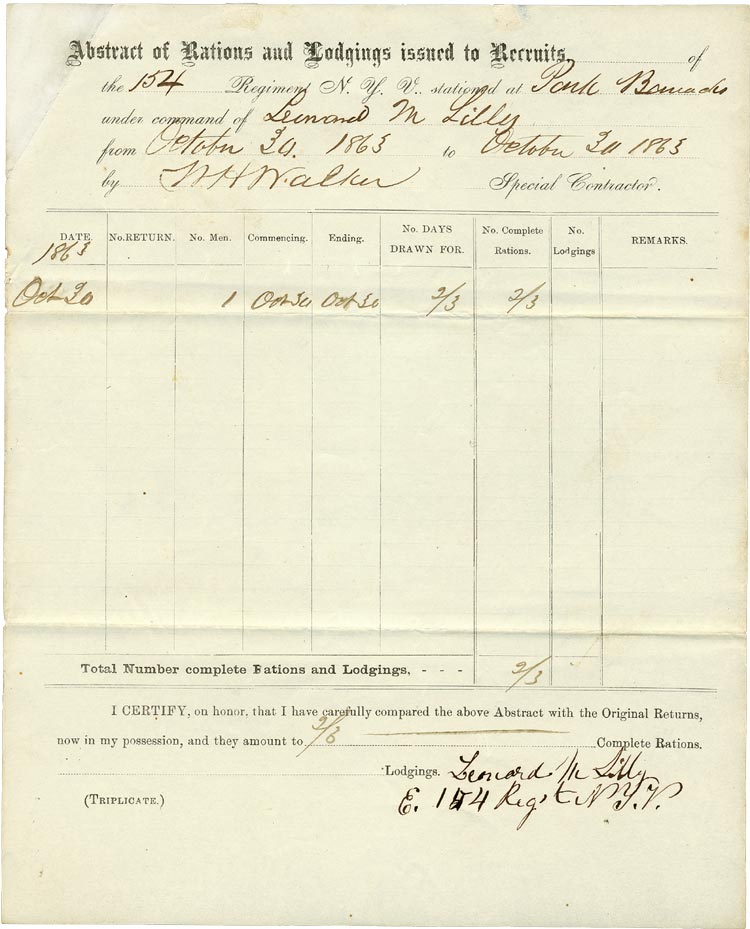 Abstract of Rations and Lodgings issued to Recruits, of
the 154 Regiment N. Y. V. stationed at Park Barracks
under command of Leonard M Lilly
from October 30. 1863 to October 30 1863
by W H Walker Special Contractor.
DATE. No. RETURN. No. Men. Commencing. Ending. No. DAYS DRAWN FOR. No. Complete Rations. No. Lodgings REMARKS.
1863
Oct 30 1 Oct 30 Oct 30 2/3 2/3
Total Number complete Rations and Lodgings, - - - 2/3
I CERTIFY, on honor, that I have carefully compared the above Abstract with the Original Returns,
now in my possession, and they amount to 2/3 Complete Rations.
Lodgings. Leonard M Lilly
(TRIPLICATE.) E. 154 Regt N Y V.